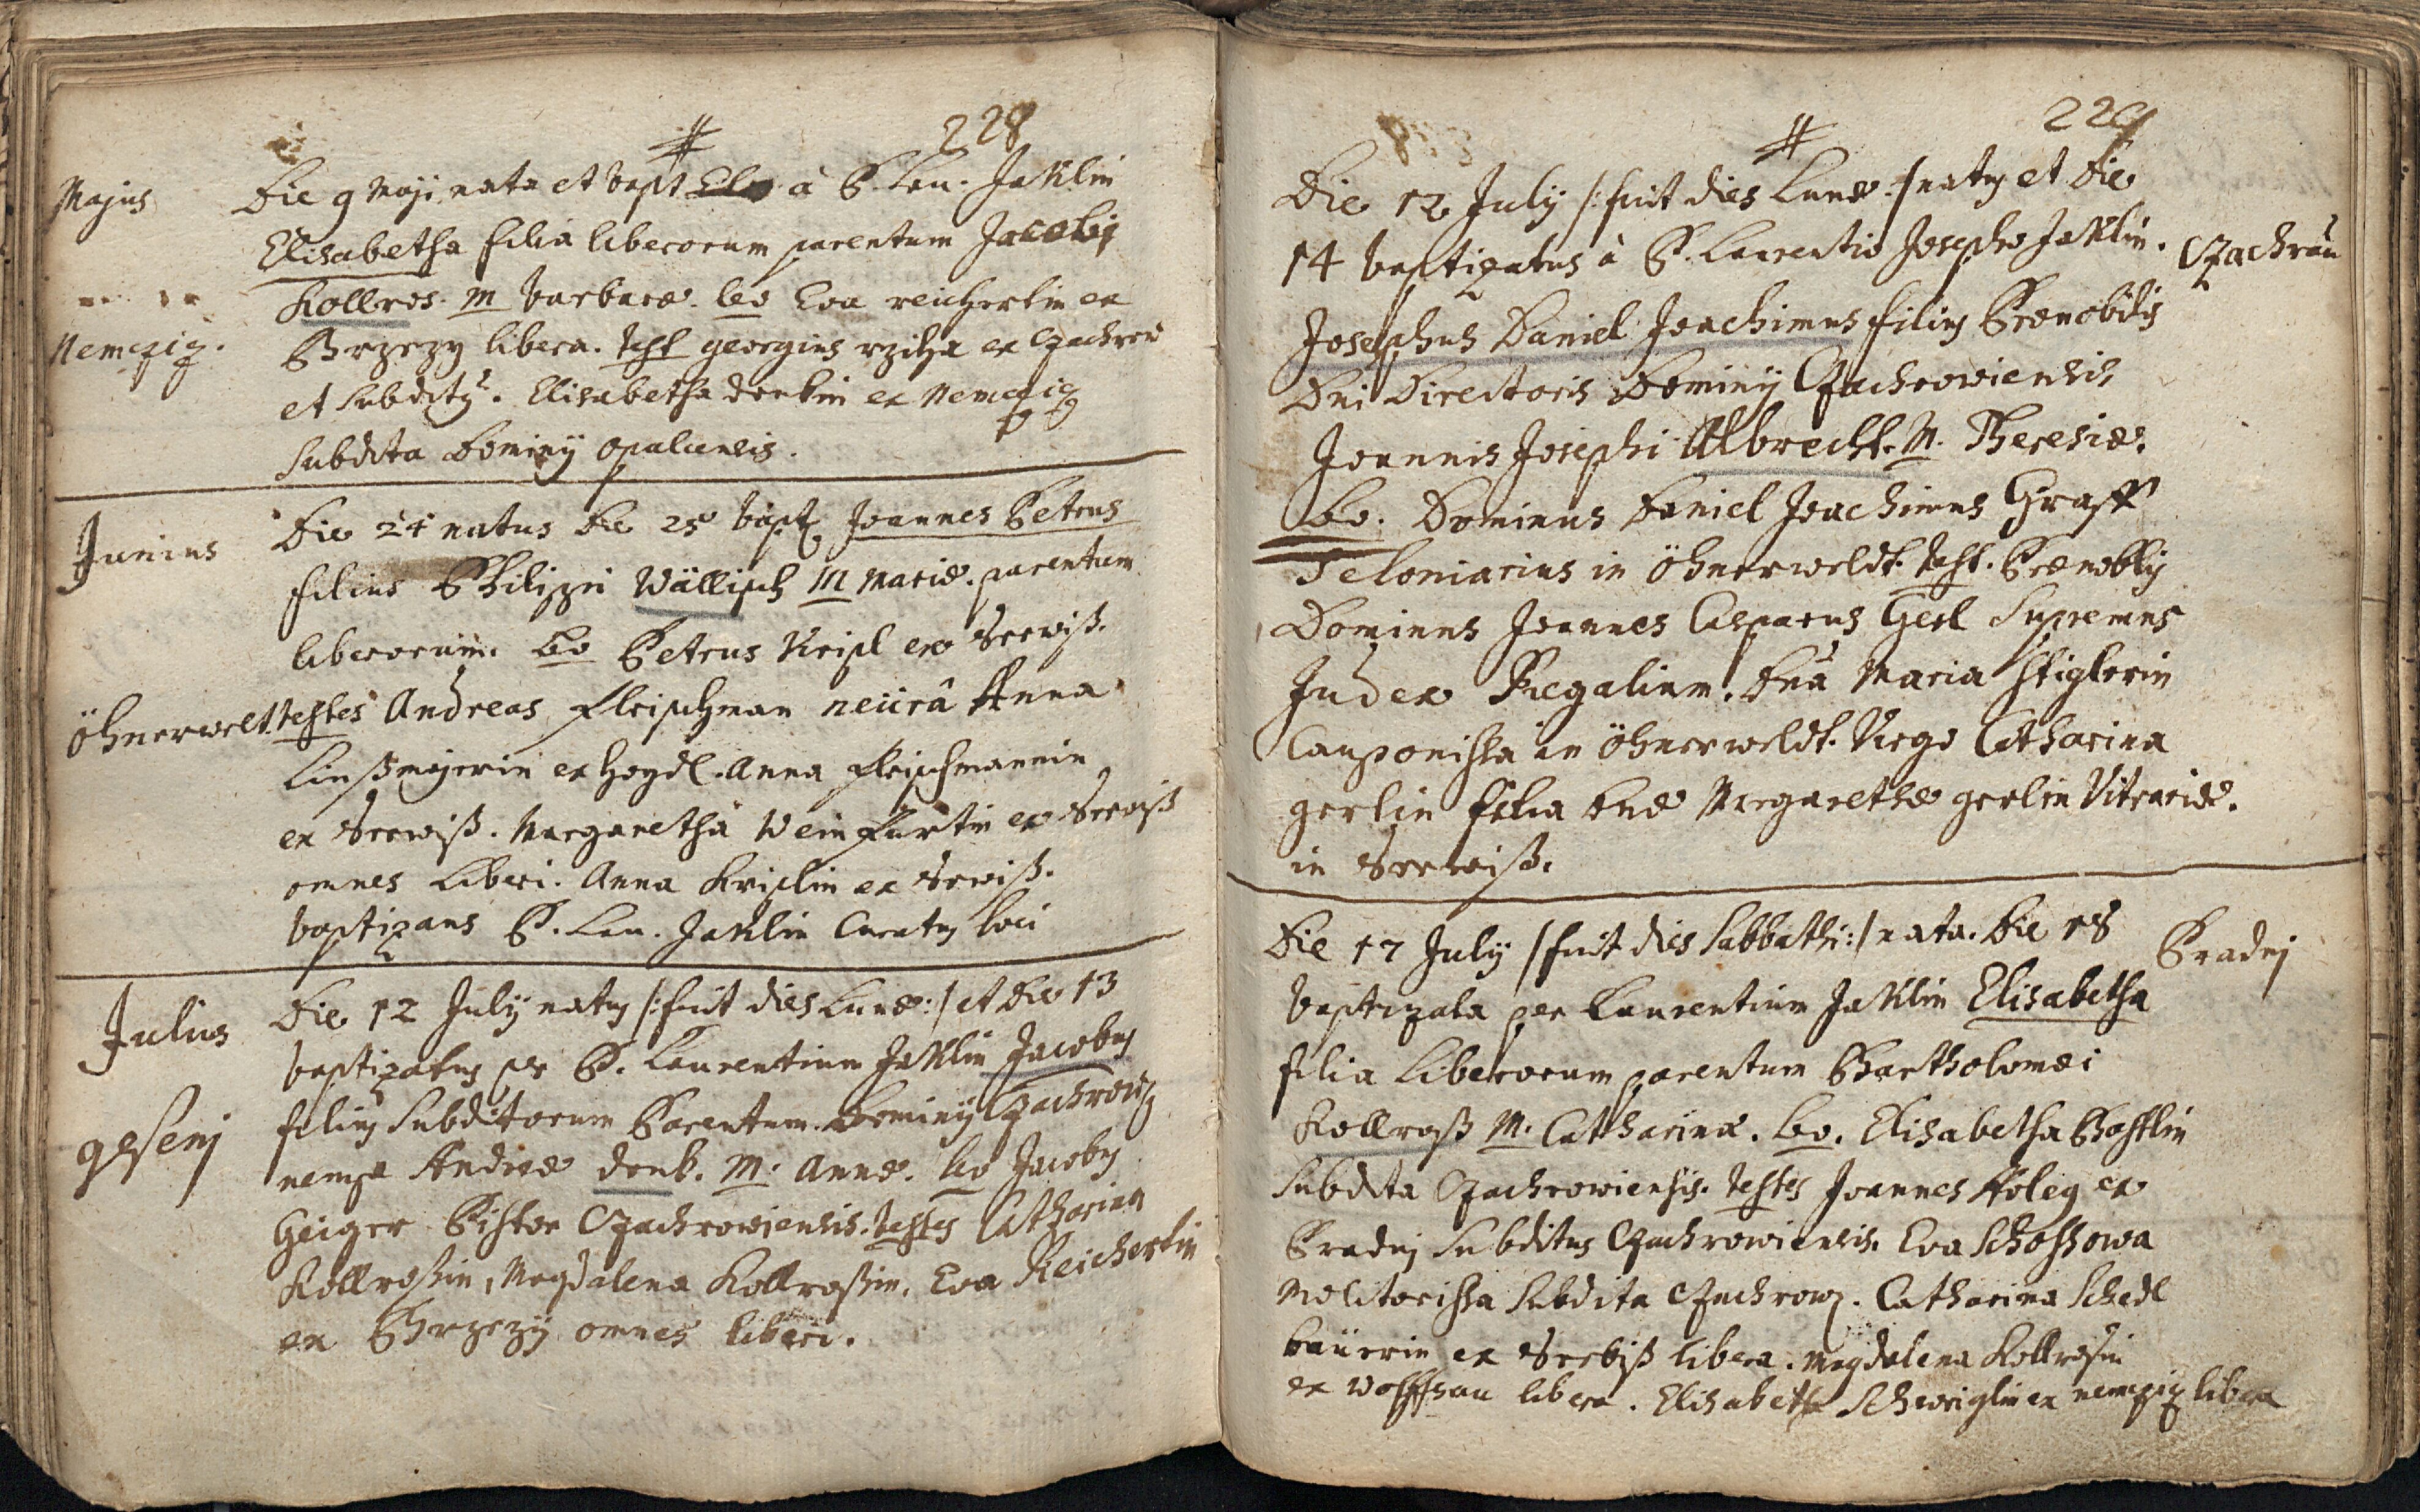 228
Majus
Die 9 Maji nata et bapt à P. Lau. Jaklin
Elisabetha filia liberorum parentum Jacobi
Kollros. M Barbaræ. Lev Eva reichertin ex
Nemczicz.
Brzezy libera. test georgius rziha ex Czachrow
et subditus. Elisabetha donbin ex Nemczicz
subdita Dominij opalcensis.
Junius
Die 24 natus Die 25 bapt Joannes Petrus
filius Philippi Wällisch M Mariæ. parentum
liberorum. Lev Petrus Kripl ex Seewiß.
Öhnerwelt
testes Andreas Fleischman Anna
Linßmejerin ex Heydl. Anna Fleischmannin
ex Seewiß. Margaretha Weinfurtin ex Seewiß
omnes Liberi. Anna Kriplin ex Sewiß.
baptizans P. Lau. Jaklin Curatus loci
Julius
Die 12 Julij natus /:fuit dies Lunæ:/ et Die 13
baptizatus per P. Laurentium Jaklin Jacobus
filius subditorum Parentum Dominij Czachrow
gesenj
nempe Andreæ donb. M. Annæ. Lev Jacobus
Geiger Pistor Czachrowiensis. testes Catharina
Kollroßin, Magdalena Kollroßin, Eva Reichertin
ex Brzezij omnes liberi.
229
Die 12 Julij /:fuit dies Lunæ:/ natus et Die
14 baptizatus à P. Laurentio Josepho Jaklin.
Czachrau
Josephus Daniel Joachimus filius Prænobilis
Dni Directoris Dominij Czachrowiensis
Joannis Josephi Albrecht. M. Theresiæ.
Lev. Dominus Daniel Joachimus Graff
Teloniarius in Öhnerweldt. test. Prænobilis
Dominus Joannes Casparus Gerl Supremus
Judex Regalium. Dna Maria Stiglerin
Cauponissa in Öhnerweldt. Virgo Catharina
gerlin filia Dnæ Margarethæ gerlin Vitrariæ.
in Seewiß.
Die 17 Julij /fuit dies Sabbathi:/ nata. Die 18
Pradnj
baptizata per Laurentium Jaklin Elisabetha
filia Liberorum parentum Bartholomæi
Kollroß M. Catharinæ. Lev. Elisabetha
subdita Czachrowiensis. testes Joannes Holeg ex
Pradnj subditus Czachrowiensis. Eva Schossowa
Molitorissa subdita Czachrow. Catharina Schedl
bauerin ex Seebiß libera. Magdalena Kollrosin
ex Wolffsau libera. Elisabetha Schweiglin ex nemczicz libera